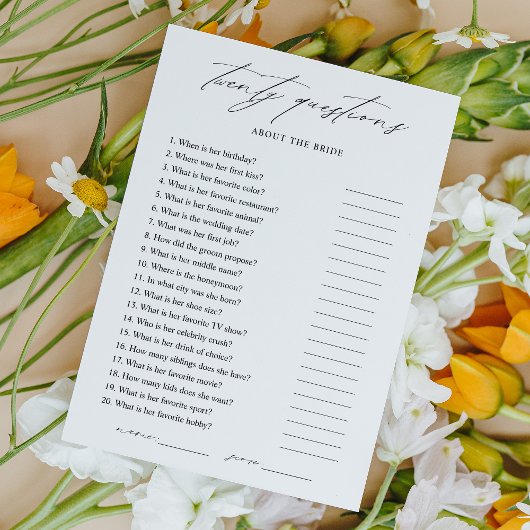 twenty questions
ABOUT THE BRIDE
1. When is her birthday?
2. Where was her first kiss?
3. What is her favorite color?
4. What is her favorite restaurant?
5. What is her favorite animal?
6. What is the wedding date?
7. What was her first job?
8. How did the groom propose?
9. What is her middle name?
10. Where is the honeymoon?
11. In what city was she born?
12. What is her shoe size?
13. What is her favorite TV show?
14. Who is her celebrity crush?
15. What is her drink of choice?
16. How many siblings does she have?
17. What is her favorite movie?
18. How many kids does she want?
19. What is her favorite sport?
20. What is her favorite hobby?
name: score: